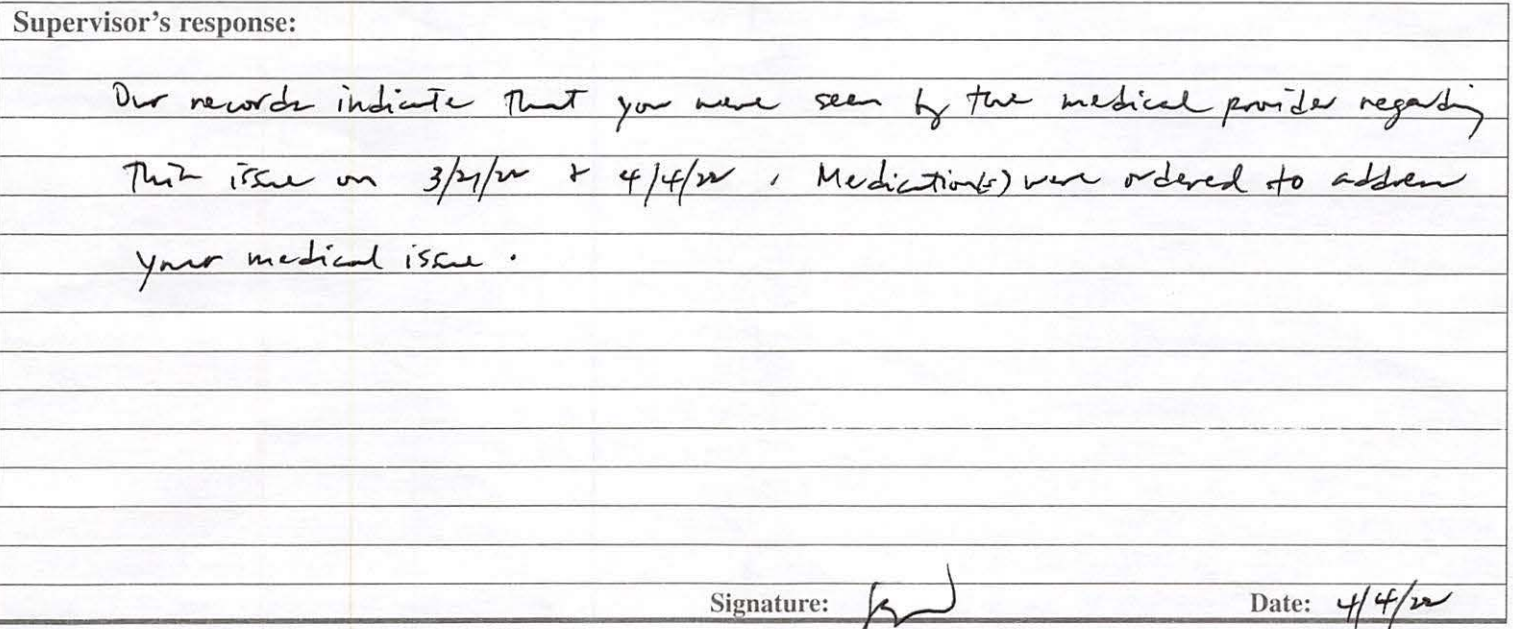 Supervisor's response:
Our records indicate that you were seen by the medical provider regarding
this issue on 3/21/22 & 4/4/22. Medication(s) were ordered to address
your medical issue.
Signature: Date: 4/4/22